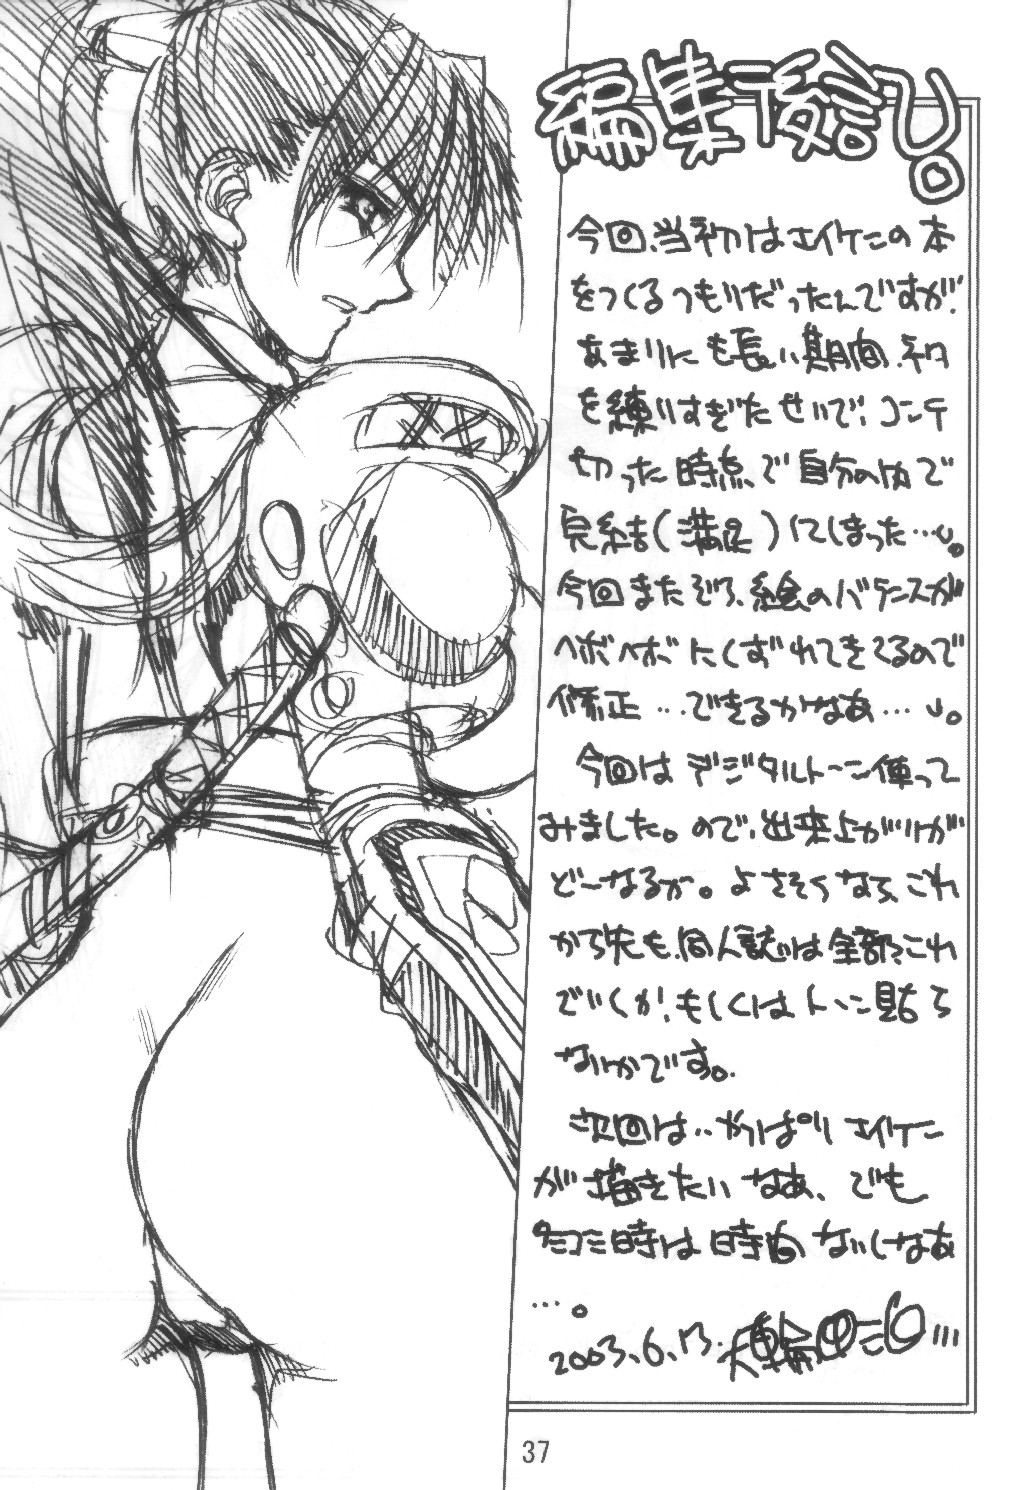 編集後記。
今回、当初はエイケンの本
をつくるつもりだったんですが、
あまりにも長い期間、ネタ
を練りすぎたせいで、コンテ
切った時点で自分の内で
完結(満足)してしまった…。
今回またぞろ、絵のバランスが
ヘボヘボにくずれてきてるので
修正…できるかなあ…。
今回はデジタルトーン使って
みました。ので、出来上がりが
どーなるか。よさそうなら、これ
から先も、同人誌は全部これ
でいくか、もしくはトーン貼ら
ないかです。
次回は‥やっぱりエイケン
が描きたいなあ、でも
夕コミ時は時間ないしなあ
…。
2003.6.13.
37